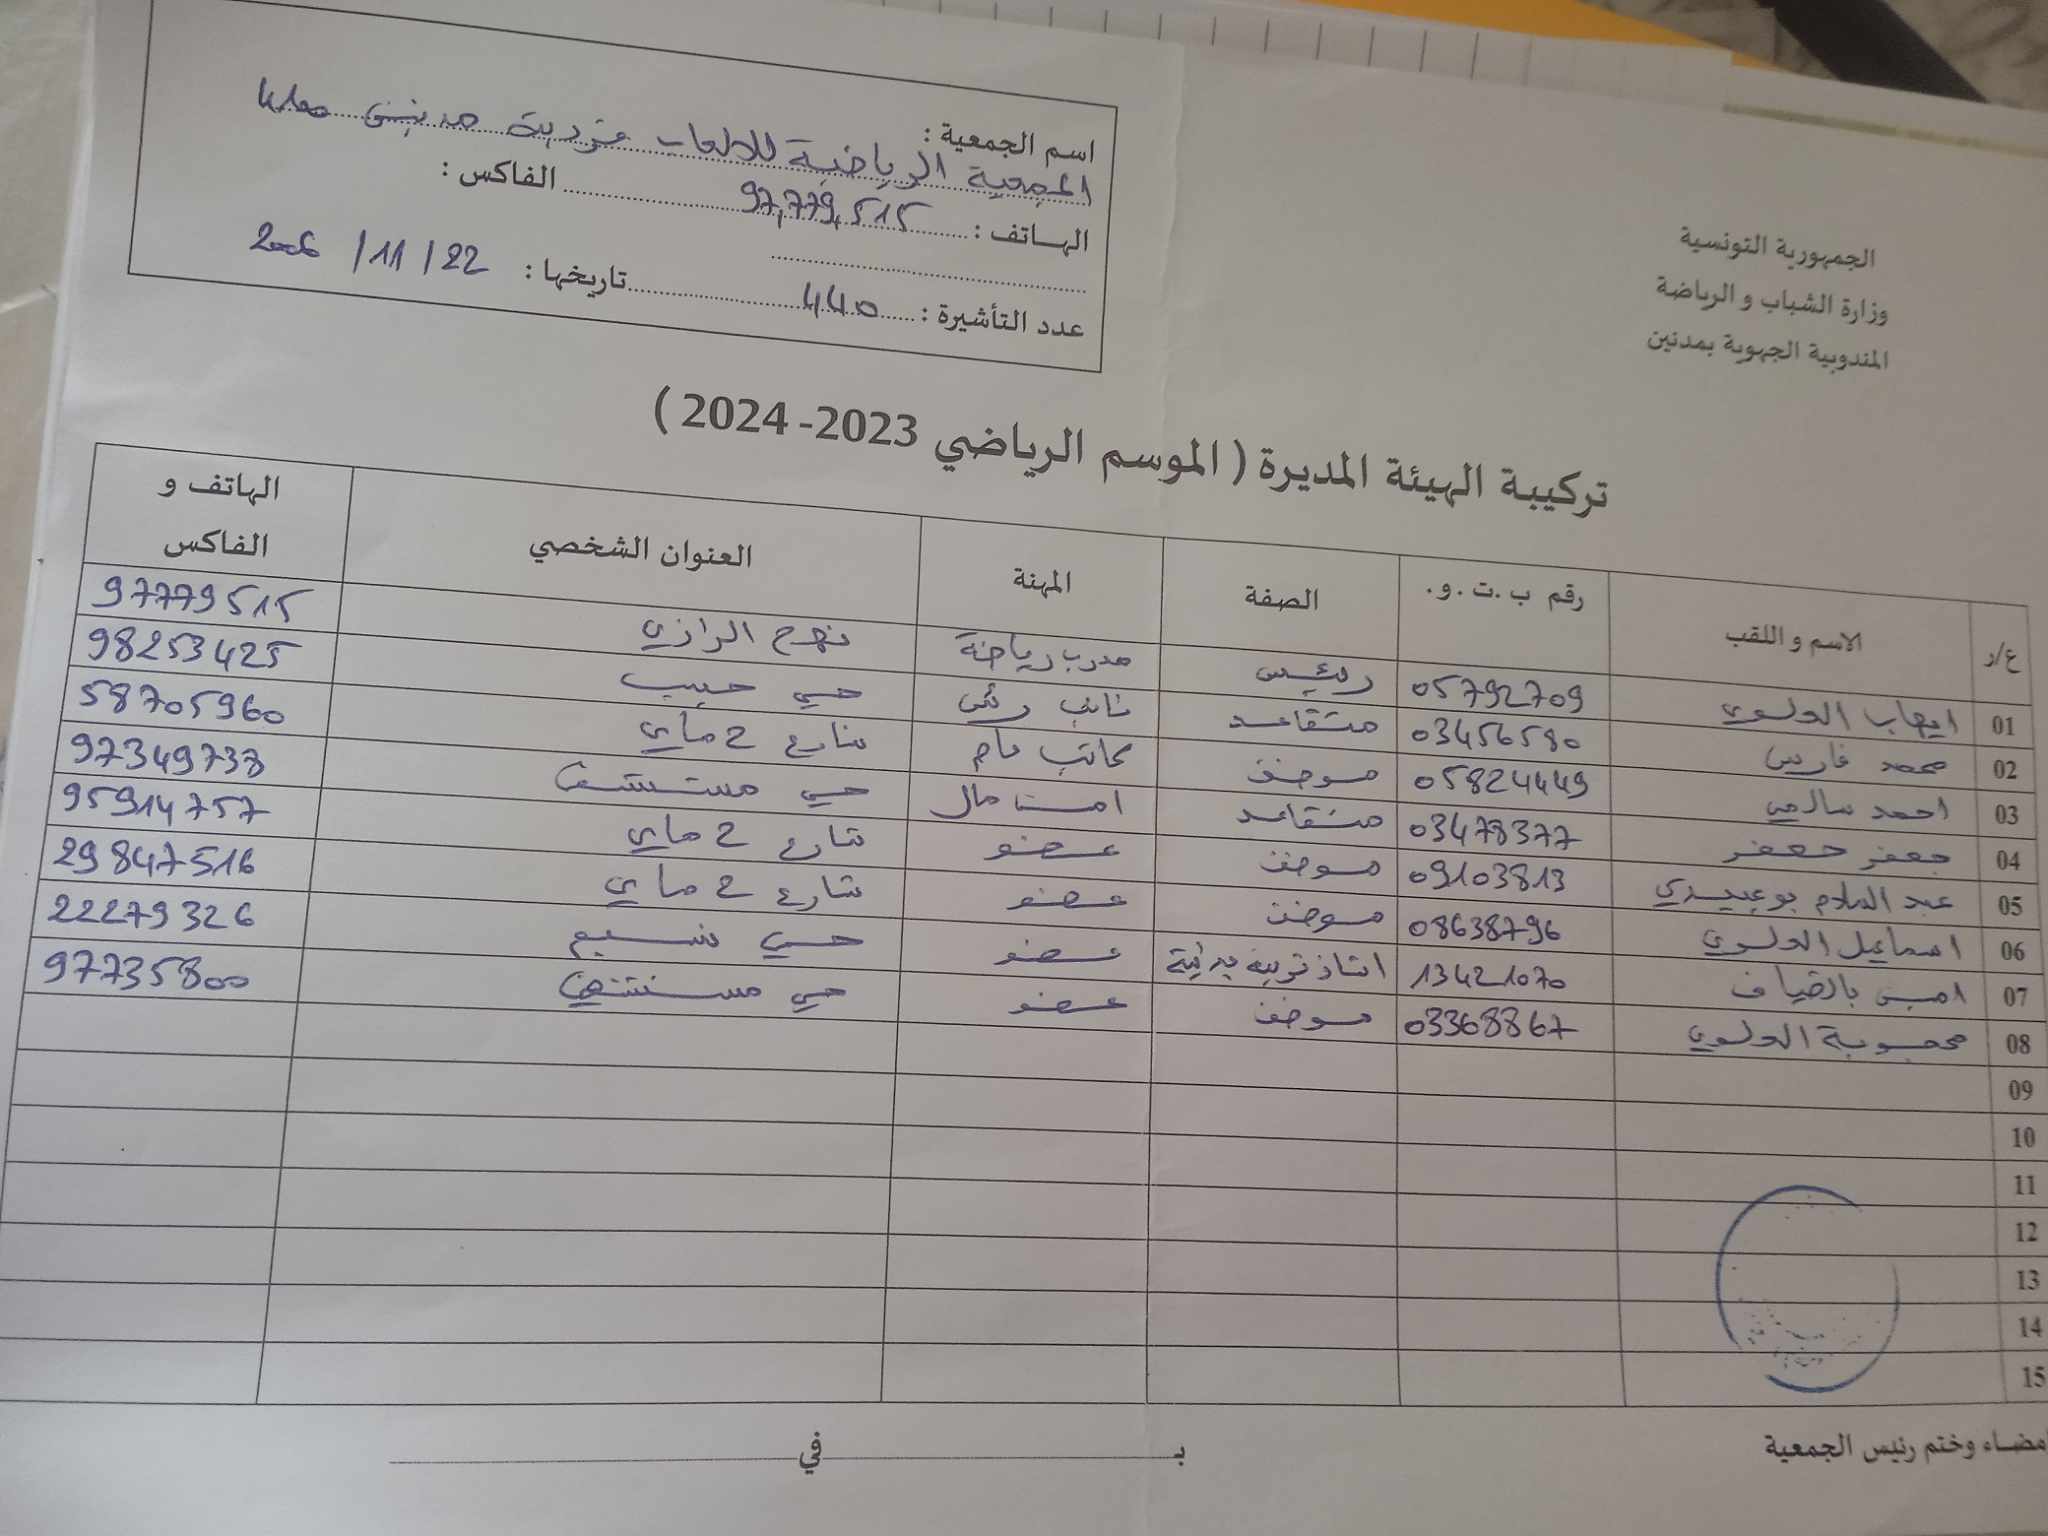 الجمهورية التونسية
وزارة الشباب و الرياضة
المندوبية الجهوية بمدنين
اسم الجمعية :
الجمعية الرياضية للالعاب فردية مدنين 4100
الهاتف : 97,779,515 الفاكس :
عدد التأشيرة : 440 تاريخها : 22 / 11 / 2006
تركيبة الهيئة المديرة ( الموسم الرياضي 2023- 2024 )
ع/ر الاسم و اللقب رقم ب .ت .و. الصفة المهنة العنوان الشخصي الهاتف و الفاكس
01 ايهاب الدلسوي 05792709 رئيس مدرب رياضة نهج الرازي 97779515
02 محمد فارس 03456580 متقاعد نائب رئيس حي حبيب 98253425
03 احمد سالمي 05824449 موضف كاتب عام شارع 2 ماي 58705960
04 جعفر جعفر 03478377 متقاعد امين مال حي مستشفى 97349738
05 عبد السلام بوعبيدي 09103813 موضف عضو شارع 2 ماي 95914757
06 اسماعيل الدلسوي 08638796 موضف عضو شارع 2 ماي 29847516
07 امين بالضياف 13421070 استاذ تربية بدنية عضو حي نسيم 22279326
08 محبوبة الدلسوي 03368867 موضف عضو حي مستشفى 97735800
09
10
11
12
13
14
15
إمضاء وختم رئيس الجمعية
بـ في